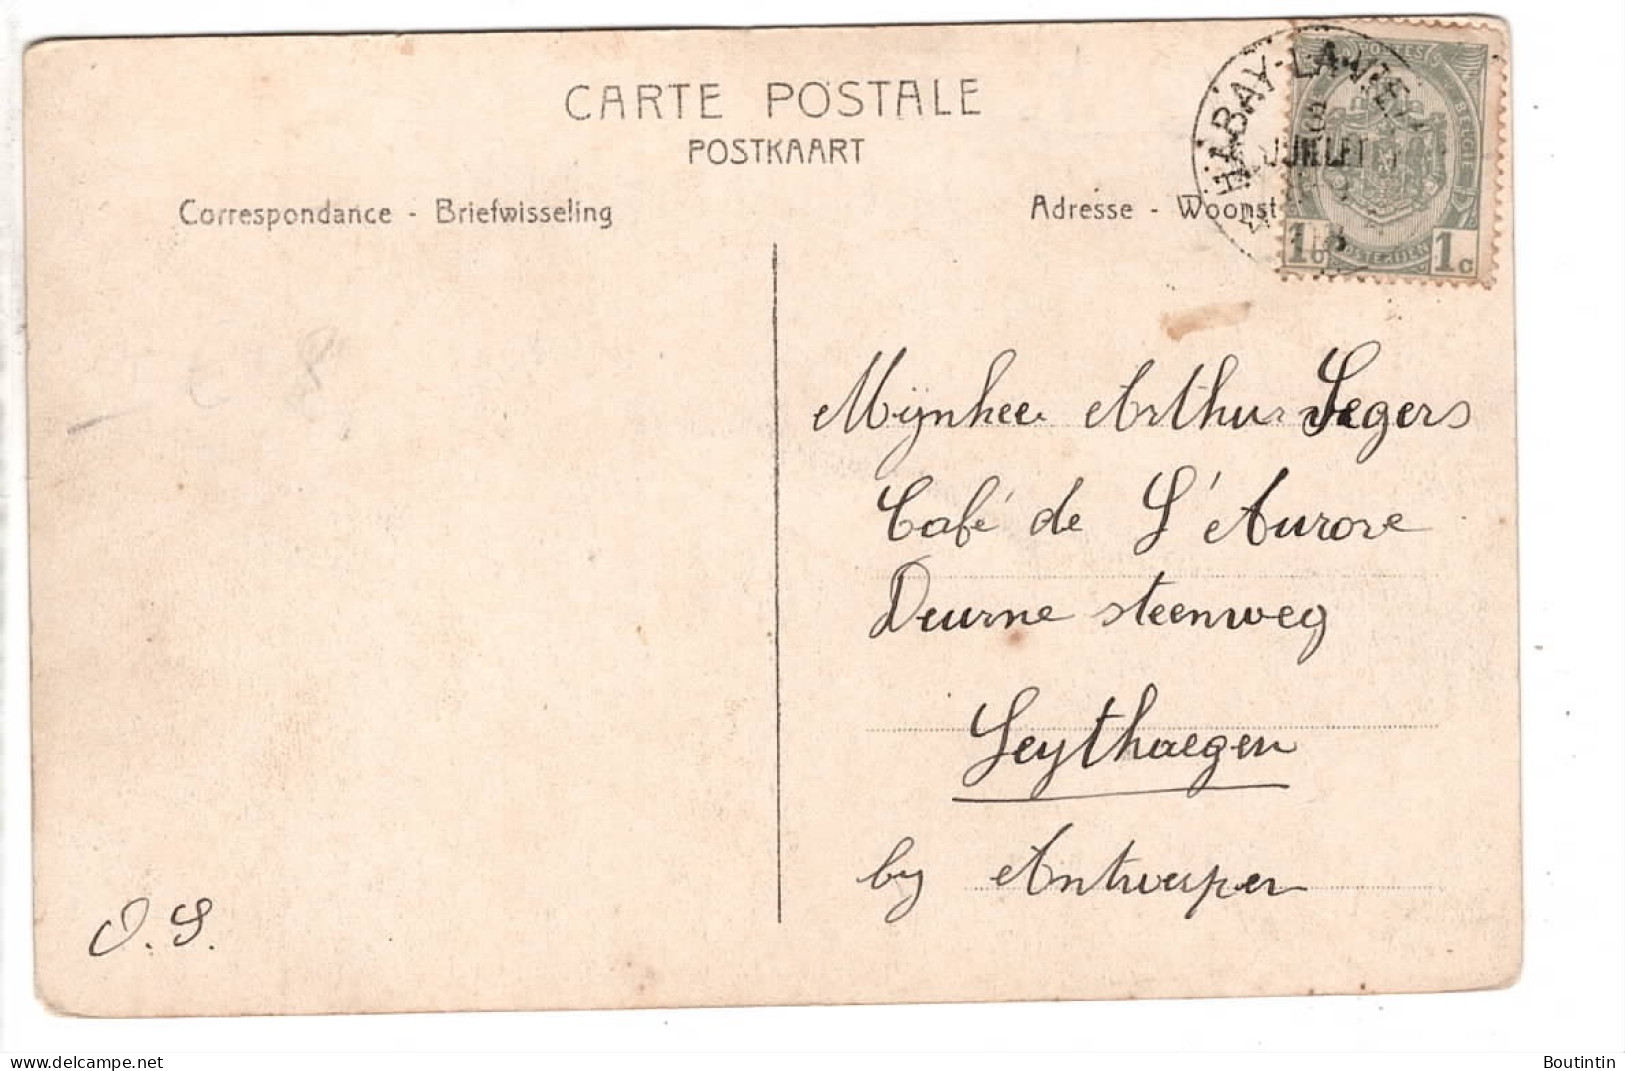 CARTE POSTALE
POSTKAART
Correspondance - Briefwisseling
Adresse - Woonst
HABAY-LA-
JUILLET
POSTES
BELGIË
POSTERIJEN
1c 1c
Mynheer Arthur Segers
Café de L'Aurore
Deurne steenweg
Seythaegen
by Antwerpen
O. S.
delcampe.net
Boutintin